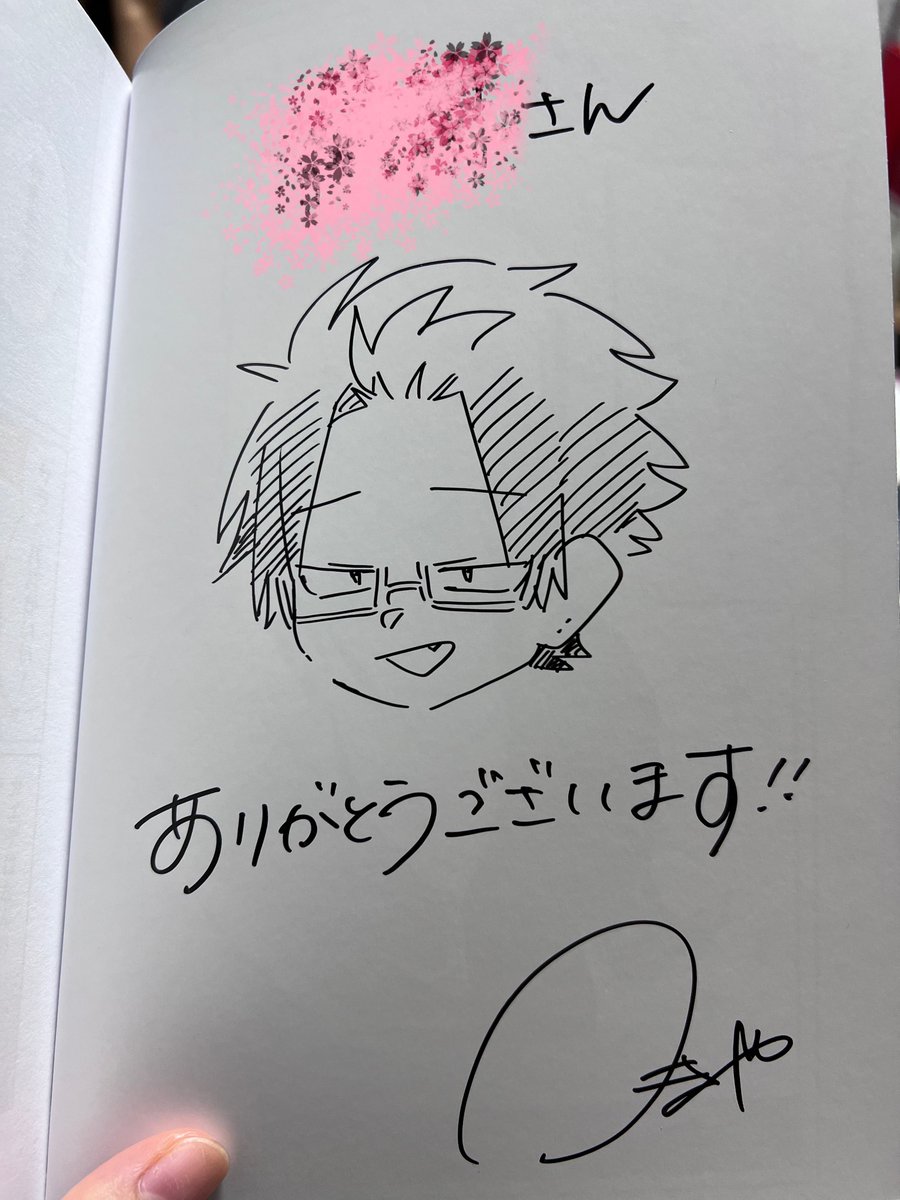 さん
ありがとうございます!!